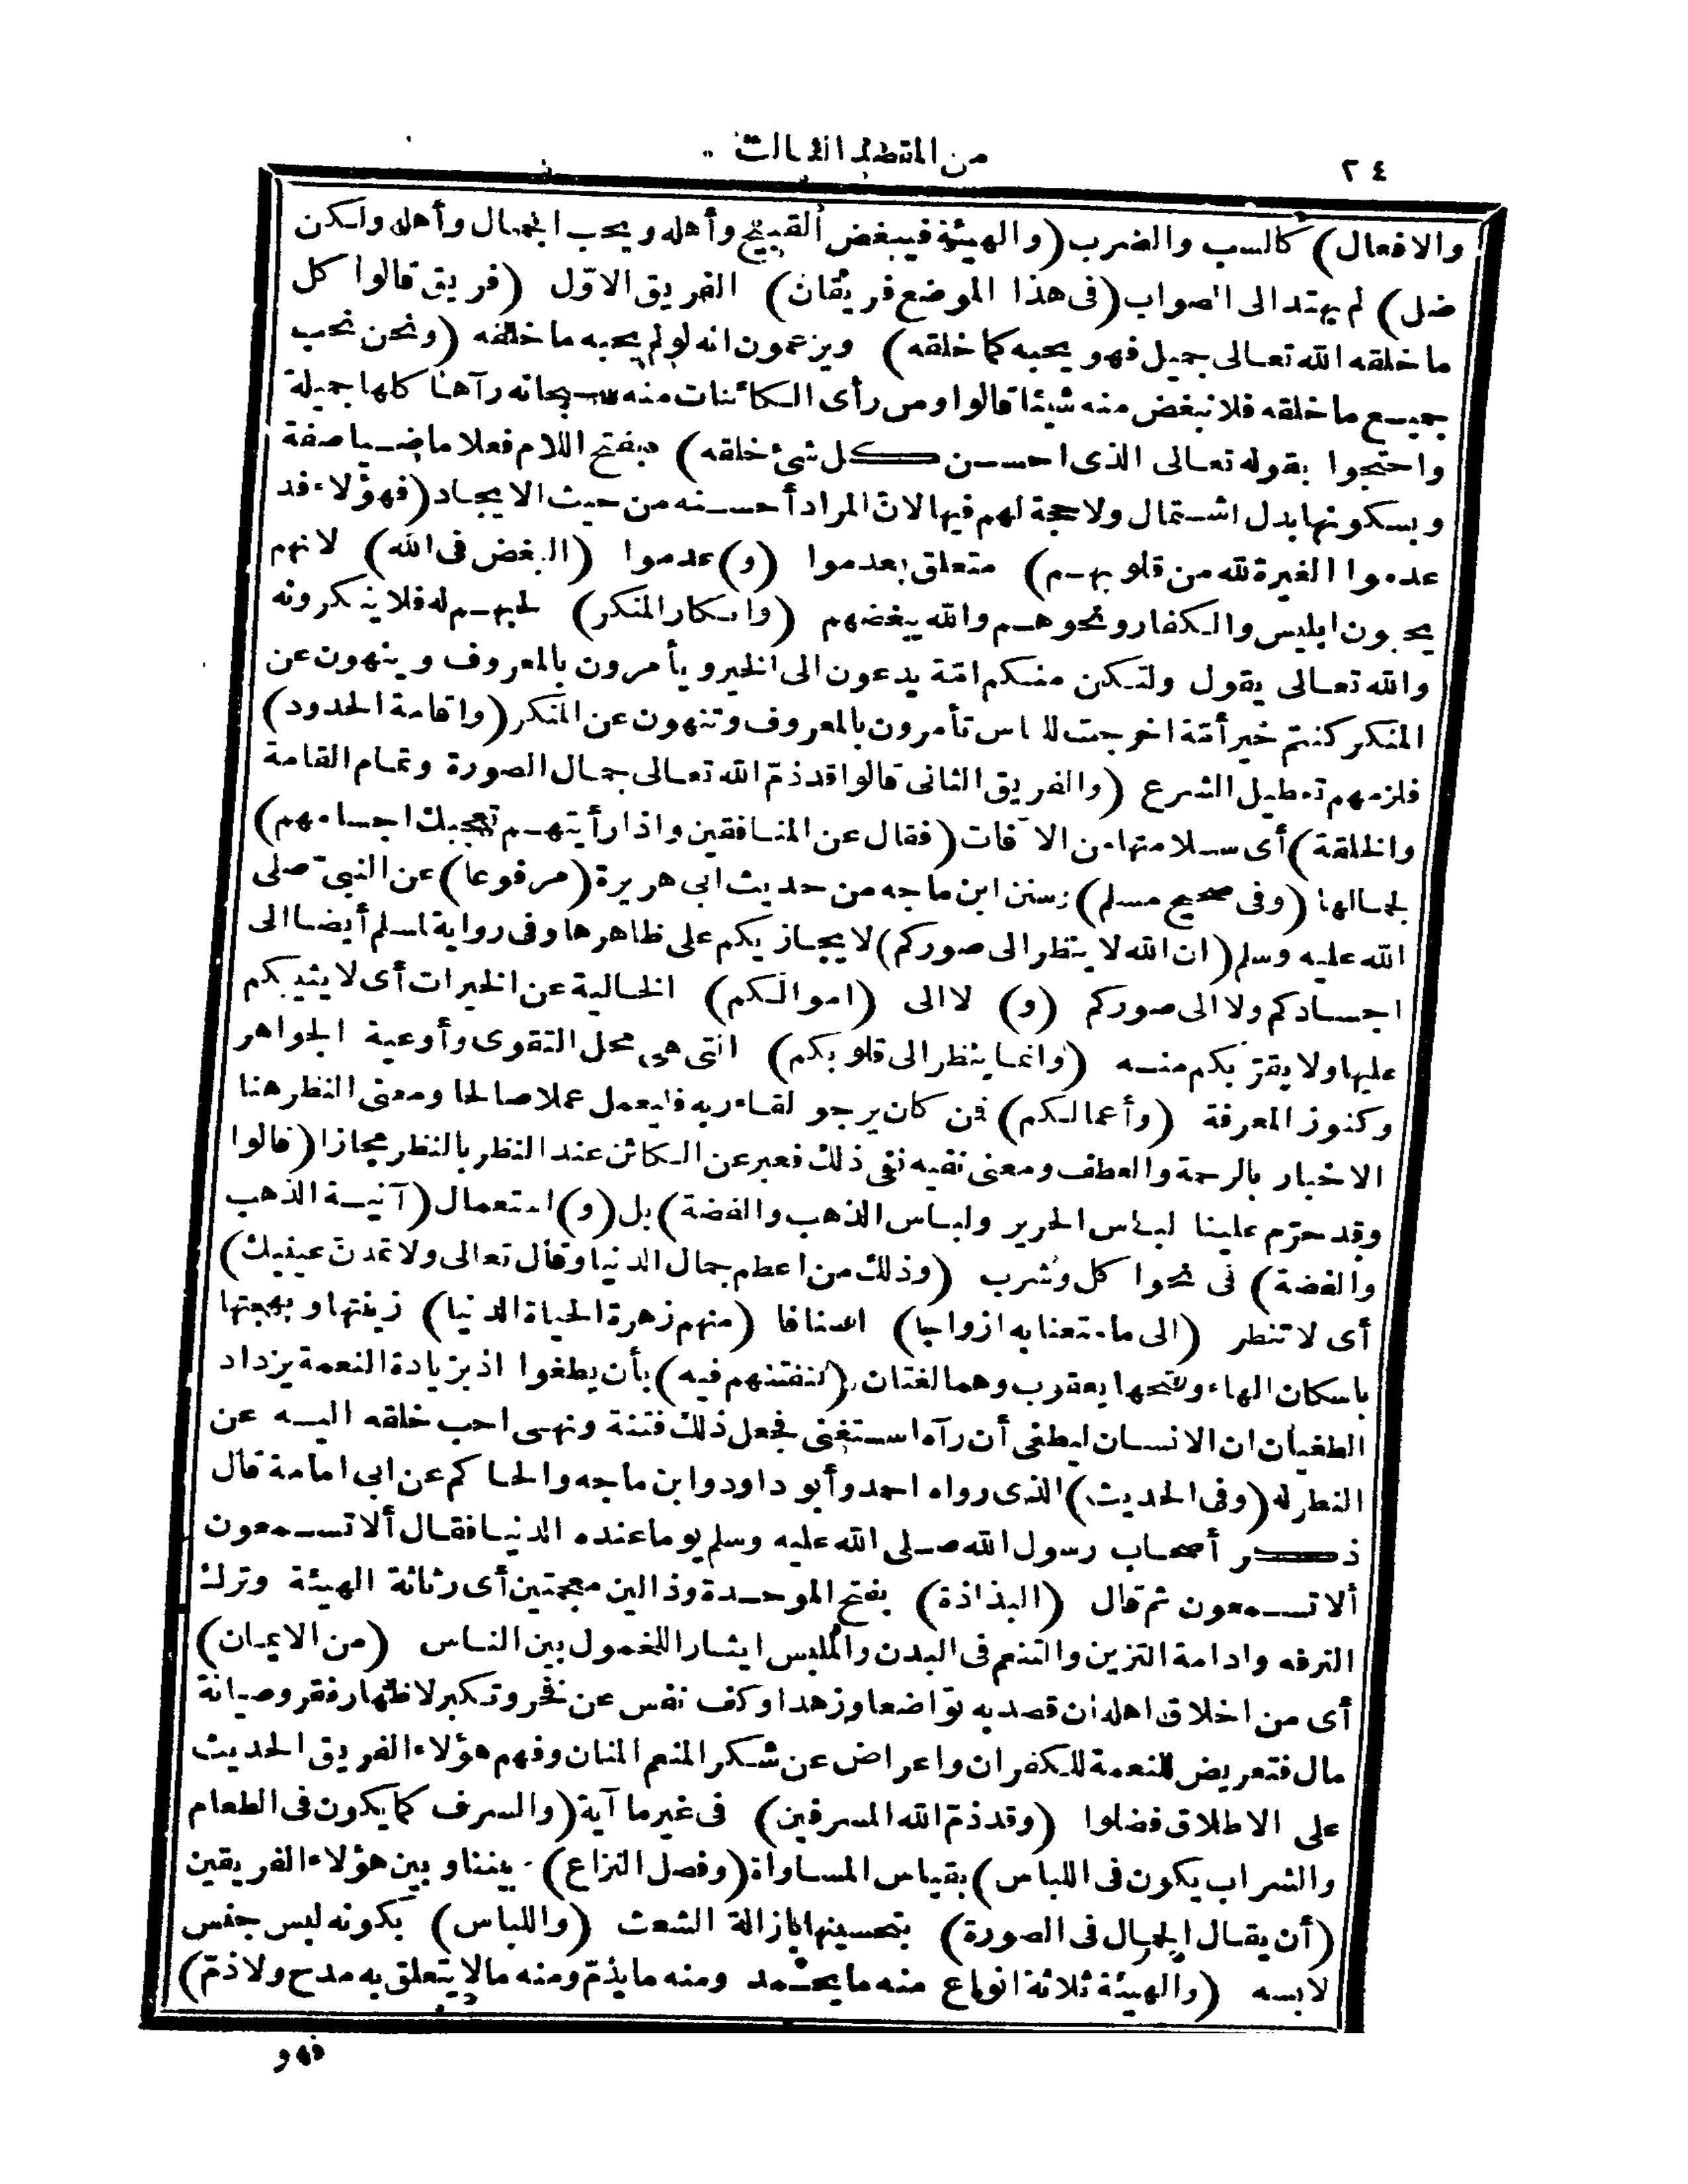 ٢٤
من المقصد الثالث
والافعال) كالسب والضرب (والهيئة فيبغض القبيح وأهله ويحب الجمال وأهله ولكن
ضل) لم يهتد الى الصواب (فى هذا الموضع فريقان) الفريق الاوّل (فريق قالوا كل
ما خلقه الله تعالى جميل فهو يحبه كما خلقه) ويزعمون انه لو لم يحبه ما خلقه (ونحن نحب
جميع ما خلقه فلا نبغض منه شيئا قالوا ومن رأى الكائنات منه سبحانه رآها كلها جميلة
واحتجوا بقوله تعالى الذى احسن كل شئ خلقه) بفتح اللام فعلا ماضيا صفة
وبسكونها بدل اشتمال ولا حجة لهم فيها لانّ المراد أحسنه من حيث الايجاد (فهؤلاء قد
عدموا الغيرة لله من قلوبهم) متعلق بعدموا (و) عدموا (البغض فى الله) لانهم
يحبون ابليس والكفار ونحوهم والله يبغضهم (وانكار المنكر) لحبهم له فلا ينكرونه
والله تعالى يقول ولتكن منكم امّة يدعون الى الخير ويأمرون بالمعروف وينهون عن
المنكر كنتم خير أمّة اخرجت للناس تأمرون بالمعروف وتنهون عن المنكر (واقامة الحدود)
فلزمهم تعطيل الشرع (والفريق الثانى قالوا قد ذمّ الله تعالى جمال الصورة وتمام القامة
والخلقة) أى سلامتها من الآفات (فقال عن المنافقين واذا رأيتهم تعجبك اجسامهم)
لجمالها (وفى صحيح مسلم) وسنن ابن ماجه من حديث ابى هريرة (مرفوعا) عن النبىّ صلى
الله عليه وسلم (ان الله لا ينظر الى صوركم) لا يجازيكم على ظاهرها وفى رواية لمسلم أيضا الى
اجسادكم ولا الى صوركم (و) لا الى (اموالكم) الخالية عن الخيرات أى لا يثيبكم
عليها ولا يقرّبكم منه (وانما ينظر الى قلوبكم) التى هى محل التقوى وأوعية الجواهر
وكنوز المعرفة (وأعمالكم) فمن كان يرجو لقاء ربه فليعمل عملا صالحا ومعنى النظر هنا
الاخبار بالرحمة والعطف ومعنى نفيه نفى ذلك فعبر عن الكائن عند النظر بالنظر مجازا (قالوا
وقد حرّم علينا لباس الحرير ولباس الذهب والفضة) بل (و) استعمال (آنية الذهب
والفضة) فى نحوا كل وشرب (وذلك من اعظم جمال الدنيا وقال تعالى ولا تمدنّ عينيك)
أى لا تنظر (الى ما متعنا به ازواجا) اصنافا (منهم زهرة الحياة الدنيا) زينتها وبهجتها
باسكان الهاء وفتحها يعقوب وهما لغتان (لنفتنهم فيه) بأن يطغوا اذ بزيادة النعمة يزداد
الطغيان ان الانسان ليطغى أن رآه استغنى فجعل ذلك فتنة ونهى احب خلقه اليه عن
النظر له (وفى الحديث) الذى رواه احمد وأبو داود وابن ماجه والحاكم عن ابى امامة قال
ذكر أصحاب رسول الله صلى الله عليه وسلم يوما عنده الدنيا فقال ألا تسمعون
ألا تسمعون ثم قال (البذاذة) بفتح الموحدة وذالين معجمتين أى رثاثة الهيئة وترك
الترفه وادامة التزين والتنعم فى البدن والملبس ايثارا للخمول بين الناس (من الايمان)
أى من اخلاق اهله ان قصد به تواضعا وزهدا وكف نفس عن فخر وتكبر لا ظهار فقر وصيانة
مال فتعريض للنعمة للكفران واعراض عن شكر المنعم المنان وفهم هؤلاء الفريق الحديث
على الاطلاق فضلوا (وقد ذمّ الله المسرفين) فى غير ما آية (والسرف كما يكون فى الطعام
والشراب يكون فى اللباس) بقياس المساواة (وفصل النزاع) بيننا وبين هؤلاء الفريقين
(أن يقال الجمال فى الصورة) بتحسينها بازالة الشعث (واللباس) بكونه لبس جنس
لابسه (والهيئة ثلاثة انواع منه ما يحمد ومنه ما يذمّ ومنه مالا يتعلق به مدح ولا ذمّ)
فهو